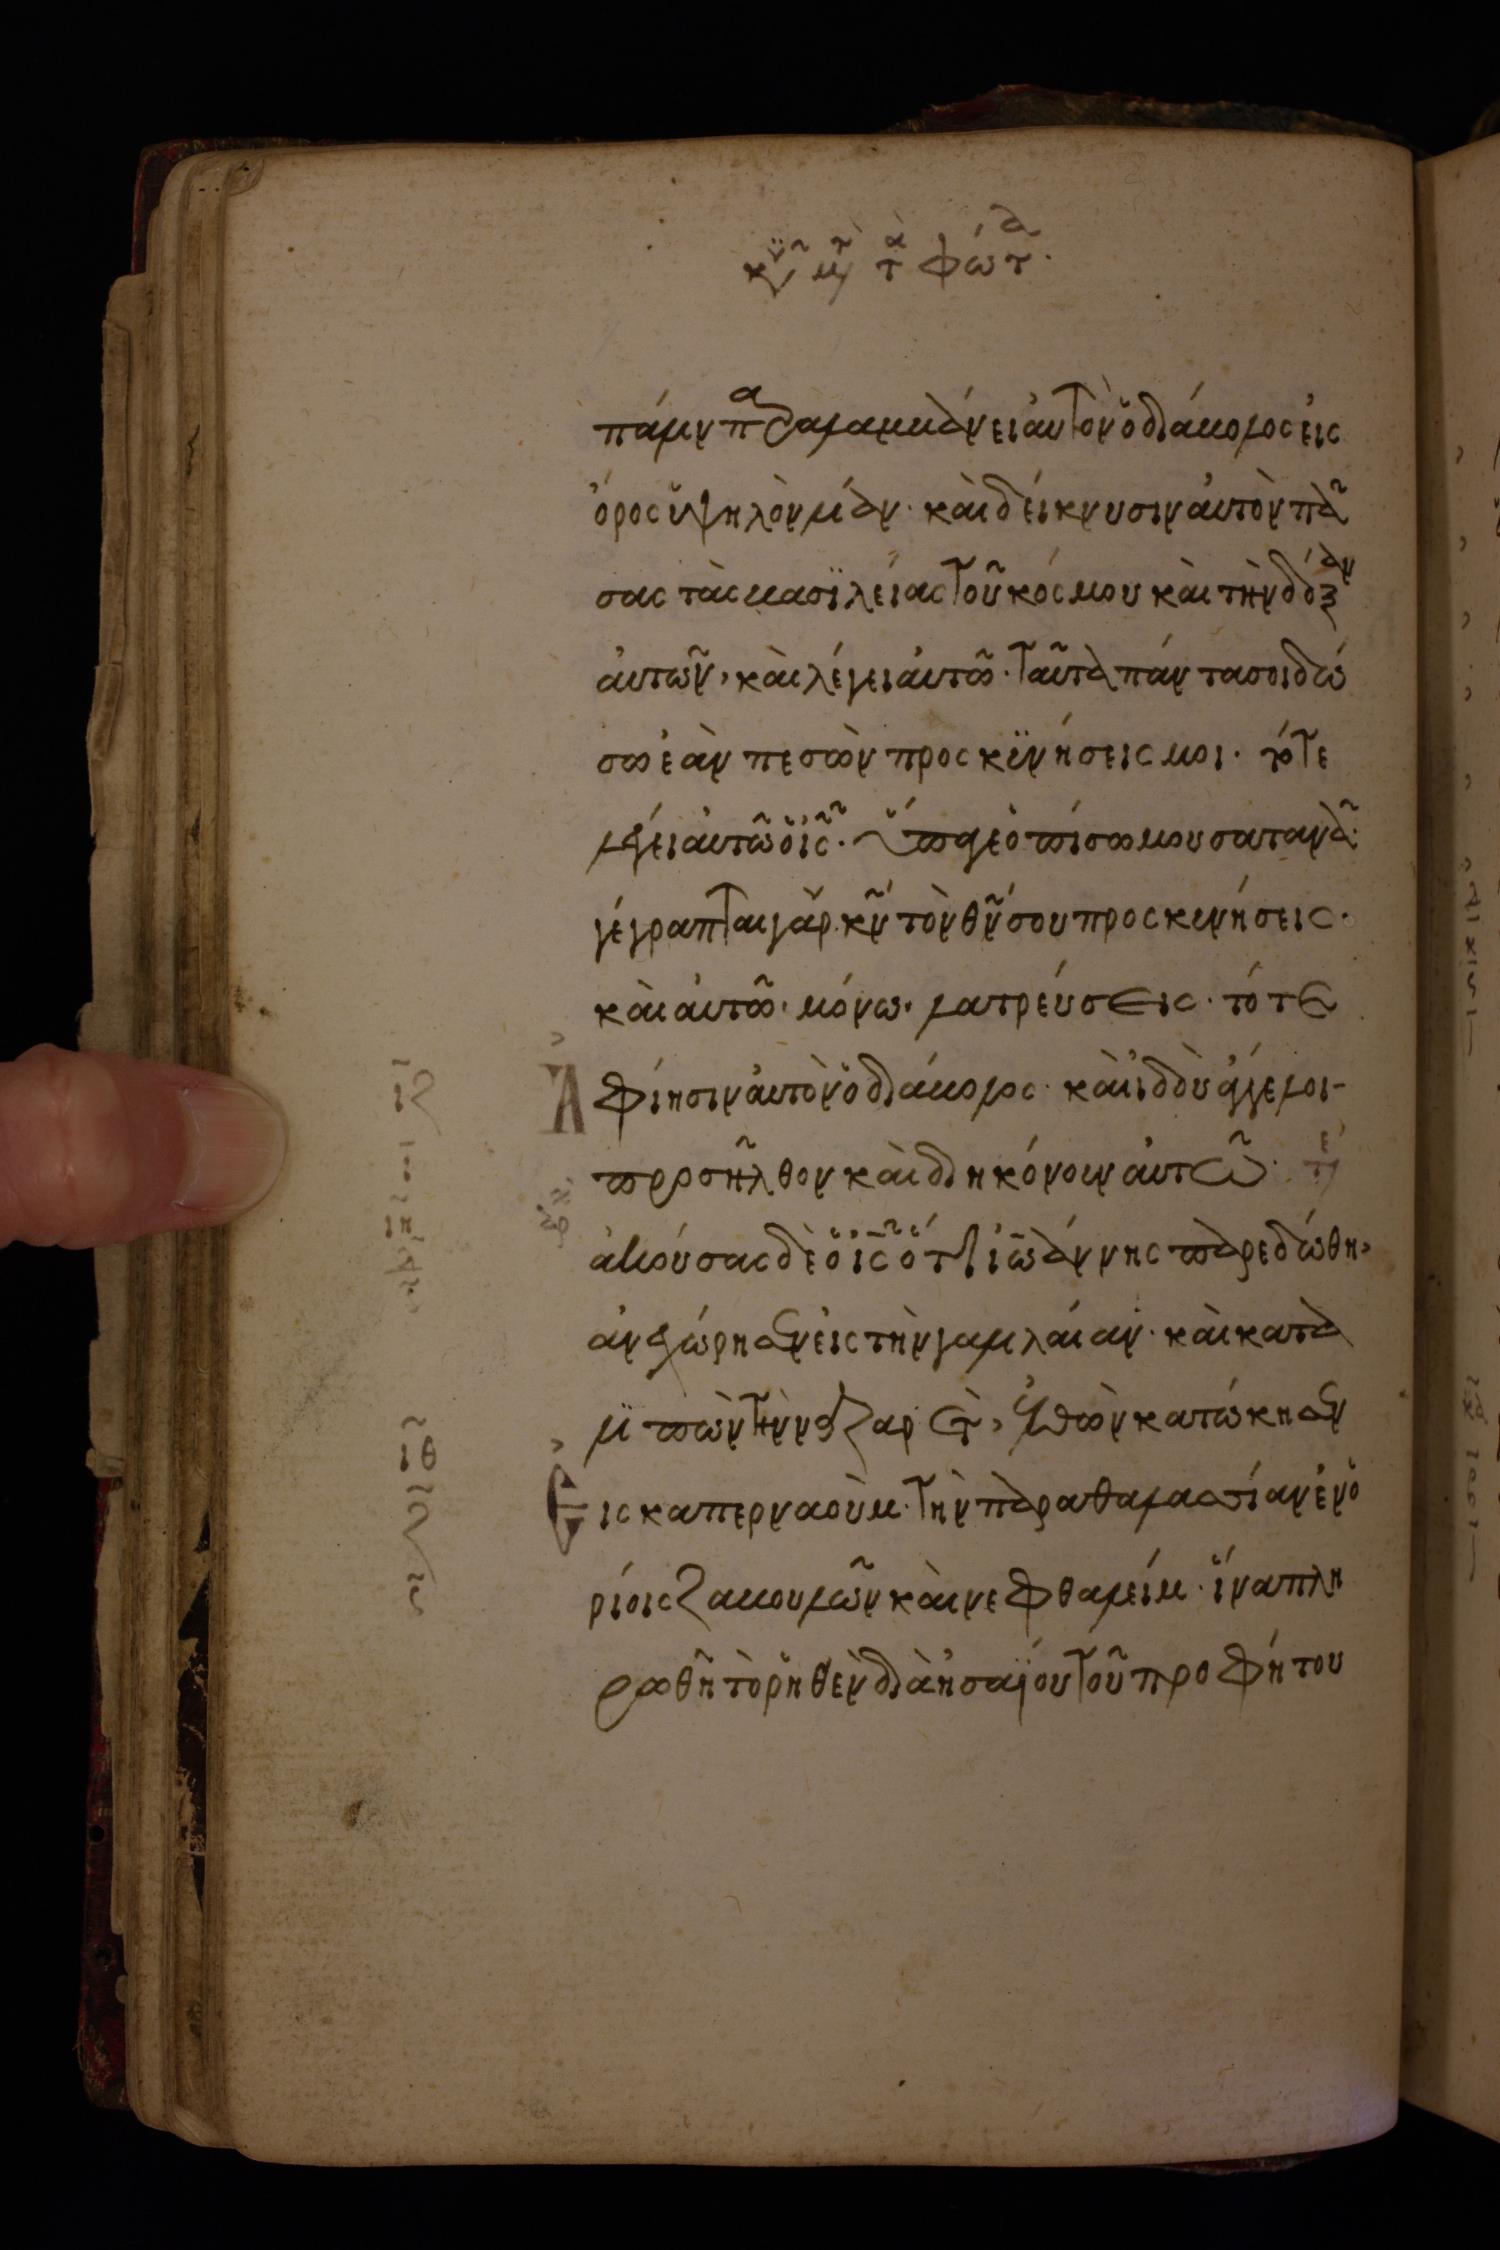 κυ μτ τα φώτα
πάλιν παραλαμβάνει αυτὸν ὁ διάβολος εἰς
ὄρος ὑψηλὸν λίαν· καὶ δείκνυσιν αὐτὸν πᾶ
σας τὰς βασιλείας τοῦ κόσμου καὶ τὴν δόξαν
αὐτῶν, καὶ λέγει αὐτῶ· ταῦτα πάντα σοι δώ
σω ἐὰν πεσὼν προσκϋνήσεις μοι· τότε
λέγει αὐτῶ ὁ ις· ὕπαγε ὀπίσω μου σατανᾶ·
γέγραπται γὰρ κν τὸν θν σου προσκυνήσεις·
καὶ αὐτῶ· μόνω· λατρεύσεις· τότε
Ἀφίησιν αὐτὸν ὁ διάβολος· καὶ ἰδοὺ ἄγγελοι
προσῆλθον καὶ διηκόνουν αὐτῶ· τε
ἀκούσας δὲ ὁ ις ὅτι ἰωάννης παρεδώθη,
ἀνεχώρησεν εἰς τὴν γαλιλαίαν· καὶ κατα
λιπὼν τὴν ναζαρὲτ, ἐλθὼν κατώκησεν
Εις καπερναοὺμ· τὴν παραθαλασσίαν ἐν ὁ
ρίοις ζαβουλῶν καὶ νεφθαλείμ· ἵνα πλη
ρωθῆ τὸ ῥηθὲν διὰ ἠσαΐου τοῦ προφήτου
ιζ
ιη
ιθ